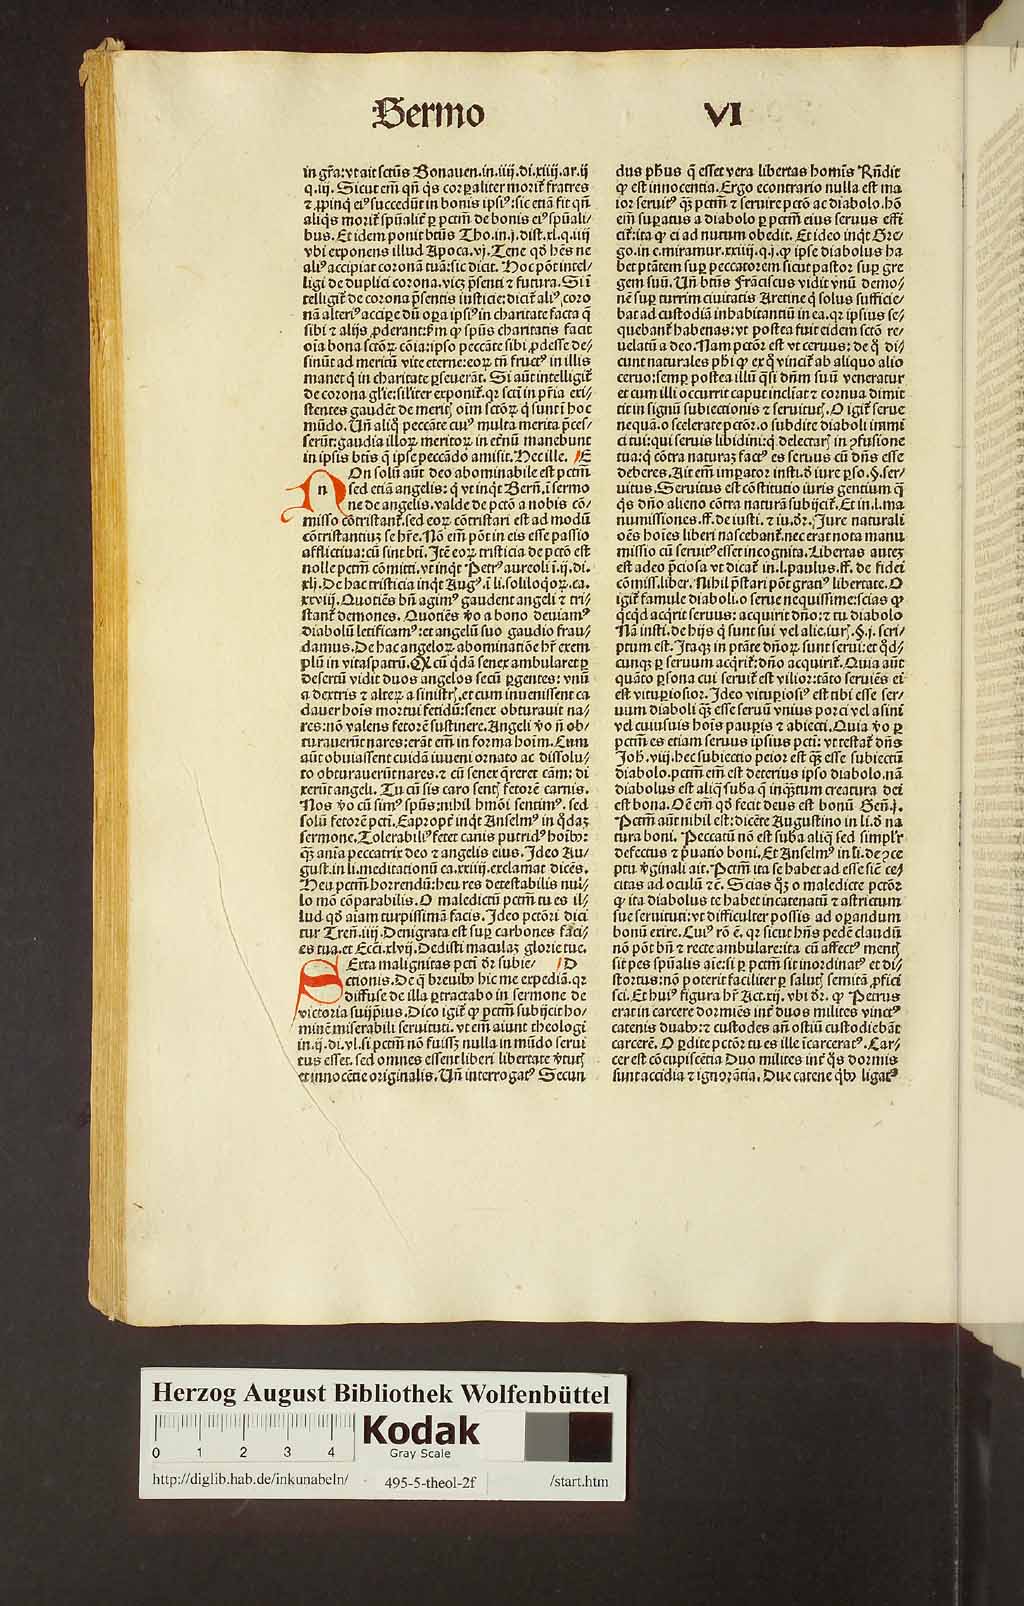 Sermo
VI
in gr̃a: vt ait sctũs Bonauen.in.iiij.di.xliij.ar.ij
q.iij. Sicut em̃ qñ q̃s corꝑaliter morit᷑ fratres
⁊ ꝓpinq̃ eiꝰ succedũt in bonis ipsiꝰ: sic etiã fit qñ
aliq̃s morit᷑ spũalit᷑ ꝑ pctm̃ de bonis eiꝰ spũali/
bus. Et idem ponit btũs Tho.in.j.dist.xl.q.iiij
vbi exponens illud Apoca.vj. Tene qd̃ hẽs ne
aliꝰ accipiat coronã tuã: sic dicit. Hoc põt intel/
ligi de duplici corona. vicꝫ p̃senti ⁊ futura. Si ĩ
telligit᷑ de corona p̃sentis iusticie: dicit᷑ aliꝰ coro
nã alteriꝰ acciꝑe dũ oꝑa ipsiꝰ in charitate facta q̃
sibi ⁊ alijs ꝓderant: fm̃ ꝙ spũs charitatis facit
oĩa bona sctõꝝ cõia: ipso peccãte sibi ꝓdesse de/
sinũt ad meritũ vite eterne: eoꝝ tñ fructꝰ in illis
manet q̃ in charitate ꝑseuerãt. Si aũt intelligit᷑
de corona gl̃ie: sil̃iter exponit᷑. qꝛ scti in pr̃ia exi/
stentes gaudẽt de meritꝭ oĩm sctõꝝ q̃ sunt ĩ hoc
mũdo. Vñ aliq̃ peccãte cuiꝰ multa merita p̃ces/
serũt: gaudia illoꝝ meritoꝝ in etr̃nũ manebunt
in ipsis btĩs q̃ ipse peccãdo amisit. Hec ille. E
NOn solũ aũt deo abominabile est pctm̃
n
sed etiã angelis: q̃ vt inq̃t Bern̄. ĩ sermo
ne de angelis. valde de pctõ a nobis cõ/
misso cõtristant᷑. sed eoꝝ cõtristari est ad modũ
cõtristantiũ se hr̃e. Nõ em̃ põt in eis esse passio
afflictiua: cũ sint bti. Itẽ eoꝝ tristicia de pctõ est
nolle pctm̃ cõmitti. vt inq̃t Petrꝰ aureoli ĩ.ij.di.
xlj. De hac tristicia inq̃t Augꝰ. ĩ li.soliloq̃oꝝ.ca.
xxviij. Quotiẽs bñ agimꝰ gaudent angeli ⁊ tri/
stant᷑ demones. Quotiẽs ṽo a bono deuiamꝰ
diabolũ letificamꝰ: et angelũ suo gaudio frau/
damus. De hac angeloꝝ abominatiõe hr̃ exem
plũ in vitaspatrũ. Qꝫ cũ q̃dã senex ambularet ꝑ
desertũ vidit duos angelos secũ ꝑgentes: vnũ
a dextris ⁊ alteꝝ a sinistrꝭ. et cum inuenissent ca
dauer hoĩs mortui fetidũ: senex obturauit na/
res: nõ valens fetorẽ sustinere. Angeli ṽo ñ ob/
turauerũt nares: erãt em̃ in forma hoĩm. Cum
aũt obuiassent cuidã iuueni ornato ac dissolu/
to obturauerũt nares. ⁊ cũ senex q̃reret cãm: di
xerũt angeli. Tu cũ sis caro sentꝭ fetorẽ carnis.
Nos ṽo cũ simꝰ spũs: nihil hmõi sentimꝰ. sed
solũ fetorẽ pcti. Eapropt᷑ inq̃t Anselmꝰ in q̃daꝫ
sermone. Tolerabiliꝰ fetet canis putridꝰ hoĩbꝰ:
q̃ꝫ aĩa peccatrix deo ⁊ angelis eius. Ideo Au/
gust.in li.meditationũ ca.xxiiij.exclamat dicẽs.
Heu pctm̃ horrendũ: heu res detestabilis nul/
lo mõ cõparabilis. O maledictũ pctm̃ tu es il/
lud qd̃ aĩam turpissimã facis. Ideo pctõri dici
tur Tren̄.iiij. Denigrata est suꝑ carbones faci/
es tua. et Ecci.xlvij. Dedisti maculaꝫ glorie tue.
SExta malignitas pcti dr̃ subie/ D
ctionis. De q̃ breuibꝰ hic me expediã. qꝛ
diffuse de illa ꝑtractabo in sermone de
victoria suijpius. Dico igit᷑ ꝙ pctm̃ subijcit ho/
minẽ miserabili seruituti. vt em̃ aiunt theologi
in.ij.di.vl.si pctm̃ nõ fuissꝫ nulla in mũdo serui
tus esset. sed omnes essent liberi libertate ṽtutꝭ
et innocẽtie originalis. Vñ interrogatꝰ Secun
dus ph̃us q̃ esset vera libertas homĩs Rñdit
ꝙ est innocentia. Ergo econtrario nulla est ma
ior seruitꝰ q̃ꝫ pctm̃ ⁊ seruire pctõ ac diabolo. hõ
em̃ suꝑatus a diabolo ꝑ pctm̃ eius seruus effi
cit᷑: ita ꝙ ei ad nutum obedit. Et ideo inq̃t Gre/
go.in c.miramur.xxiiij.q.j.ꝙ ipse diabolus ha
bet ptãtem suꝑ peccatorem sicut pastor suꝑ gre
gem suũ. Vñ btũs Frãciscus vidit vnũ demo/
nẽ suꝑ turrim ciuitatis Aretine q̃ solus sufficie/
bat ad custodiã inhabitantiũ in ea. qꝛ ipsius se/
quebant᷑ habenas: vt postea fuit eidem sctõ re/
uelatũ a deo. Nam pctõr est vt ceruus: de q̃ di/
cunt naturales ph̃i ꝙ ex q̃ vincit᷑ ab aliquo alio
ceruo: semꝑ postea illũ q̃si dñm suũ veneratur
et cum illi occurrit caput inclĩat ⁊ cornua dimit
tit in signũ subiectionis ⁊ seruitutꝭ. O igit᷑ serue
nequã. o scelerate pctõr. o subdite diaboli inimi
ci tui: qui seruis libidini: q̃ delectarꝭ in ꝯfusione
tua: q̃ cõtra naturaꝫ factꝰ es seruus cũ dñs esse
deberes. Ait em̃ imꝑator insti.d̃ iure ꝑso.§.ser/
uitus. Seruitus est cõstitutio iuris gentium q̃
q̃s dño alieno cõtra naturã subijcit᷑. Et in.l.ma
numissiones.ff.de iusti.⁊ iu.dr̃. Jure naturali
oẽs hoĩes liberi nascebant᷑. nec erat nota manu
missio cũ seruitꝰ esset incognita. Libertas auteꝫ
est adeo p̃ciosa vt dicat᷑ in.l.paulus.ff.de fidei
cõmiss.liber. Nihil p̃stari põt gratiꝰ libertate. O
igit᷑ famule diaboli. o serue nequissime: scias ꝙ
q̃cq̃d acq̃rit seruus: acquirit dño: ⁊ tu diabolo
Nã insti.de hijs q̃ sunt sui vel alie.iurꝭ.§.j.scri/
ptum est. Itaqꝫ in ptãte dñoꝝ sunt serui: et q̃d/
cunqꝫ ꝑ seruum acq̃rit᷑: dño acquirit᷑. Quia aũt
quãto ꝑsona cui seruit᷑ est vilior: tãto seruiẽs ei
est vituꝑiosior. Ideo vituꝑiosiꝰ est tibi esse ser/
uum diaboli q̃ꝫ esse seruũ vnius porci vel asini
vel cuiusuis hoĩs pauꝑis ⁊ abiecti. Quia ṽo ꝑ
pctm̃ es etiam seruus ipsius pcti: vt testat᷑ dñs
Joh̃.viij. hec subiectio peior est q̃ꝫ esse subiectũ
diabolo. pctm̃ em̃ est deterius ipso diabolo. nã
diabolus est aliq̃ suba q̃ inq̃ꝫtum creatura dei
est bona. Oẽ em̃ qd̃ fecit deus est bonũ Gen̄.j.
Pctm̃ aũt nihil est: dicẽte Augustino in li.d̃ na
tura boni. Peccatũ nõ est suba aliq̃ sed simpl̃r
defectus ⁊ p̃uatio boni. Et Anselmꝰ in li.de ꝯce
ptu ṽginali ait. Pctm̃ ita se habet ad esse sicẽ ce/
citas ad oculũ ⁊c̃. Scias q̃ꝫ o maledicte pctõr
ꝙ ita diabolus te habet incatenatũ ⁊ astrictum
sue seruituti: vt difficulter possis ad oꝑandum
bonũ exire. Cuiꝰ rõ ẽ. qꝛ sicut hñs pedẽ claudũ
nõ põt bñ ⁊ recte ambulare: ita cũ affectꝰ mentꝭ
sit pes spũalis aĩe: si ꝑ pctm̃ sit inordinatꝰ et di/
stortus: nõ poterit faciliter ꝑ salutꝭ semitã ꝓfici
sci. Et huiꝰ figura hr̃ Act.xij. vbi dr̃. ꝙ Petrus
erat in carcere dormiẽs int᷑ duos milites vinctꝰ
catenis duabꝰ: ⁊ custodes añ ostiũ custodiebãt
carcerẽ. O ꝑdite pctõr tu es ille ĩcarceratꝰ. Car/
cer est cõcupiscẽtia Duo milites int᷑ q̃s dormis
sunt accidia ⁊ ignorãtia. Due catene q̃bꝰ ligatꝰ
Herzog August Bibliothek Wolfenbüttel
0 1 2 3 4
Kodak
Gray Scale
http://diglib.hab.de/inkunabeln/ 495-5-theol-2f /start.htm